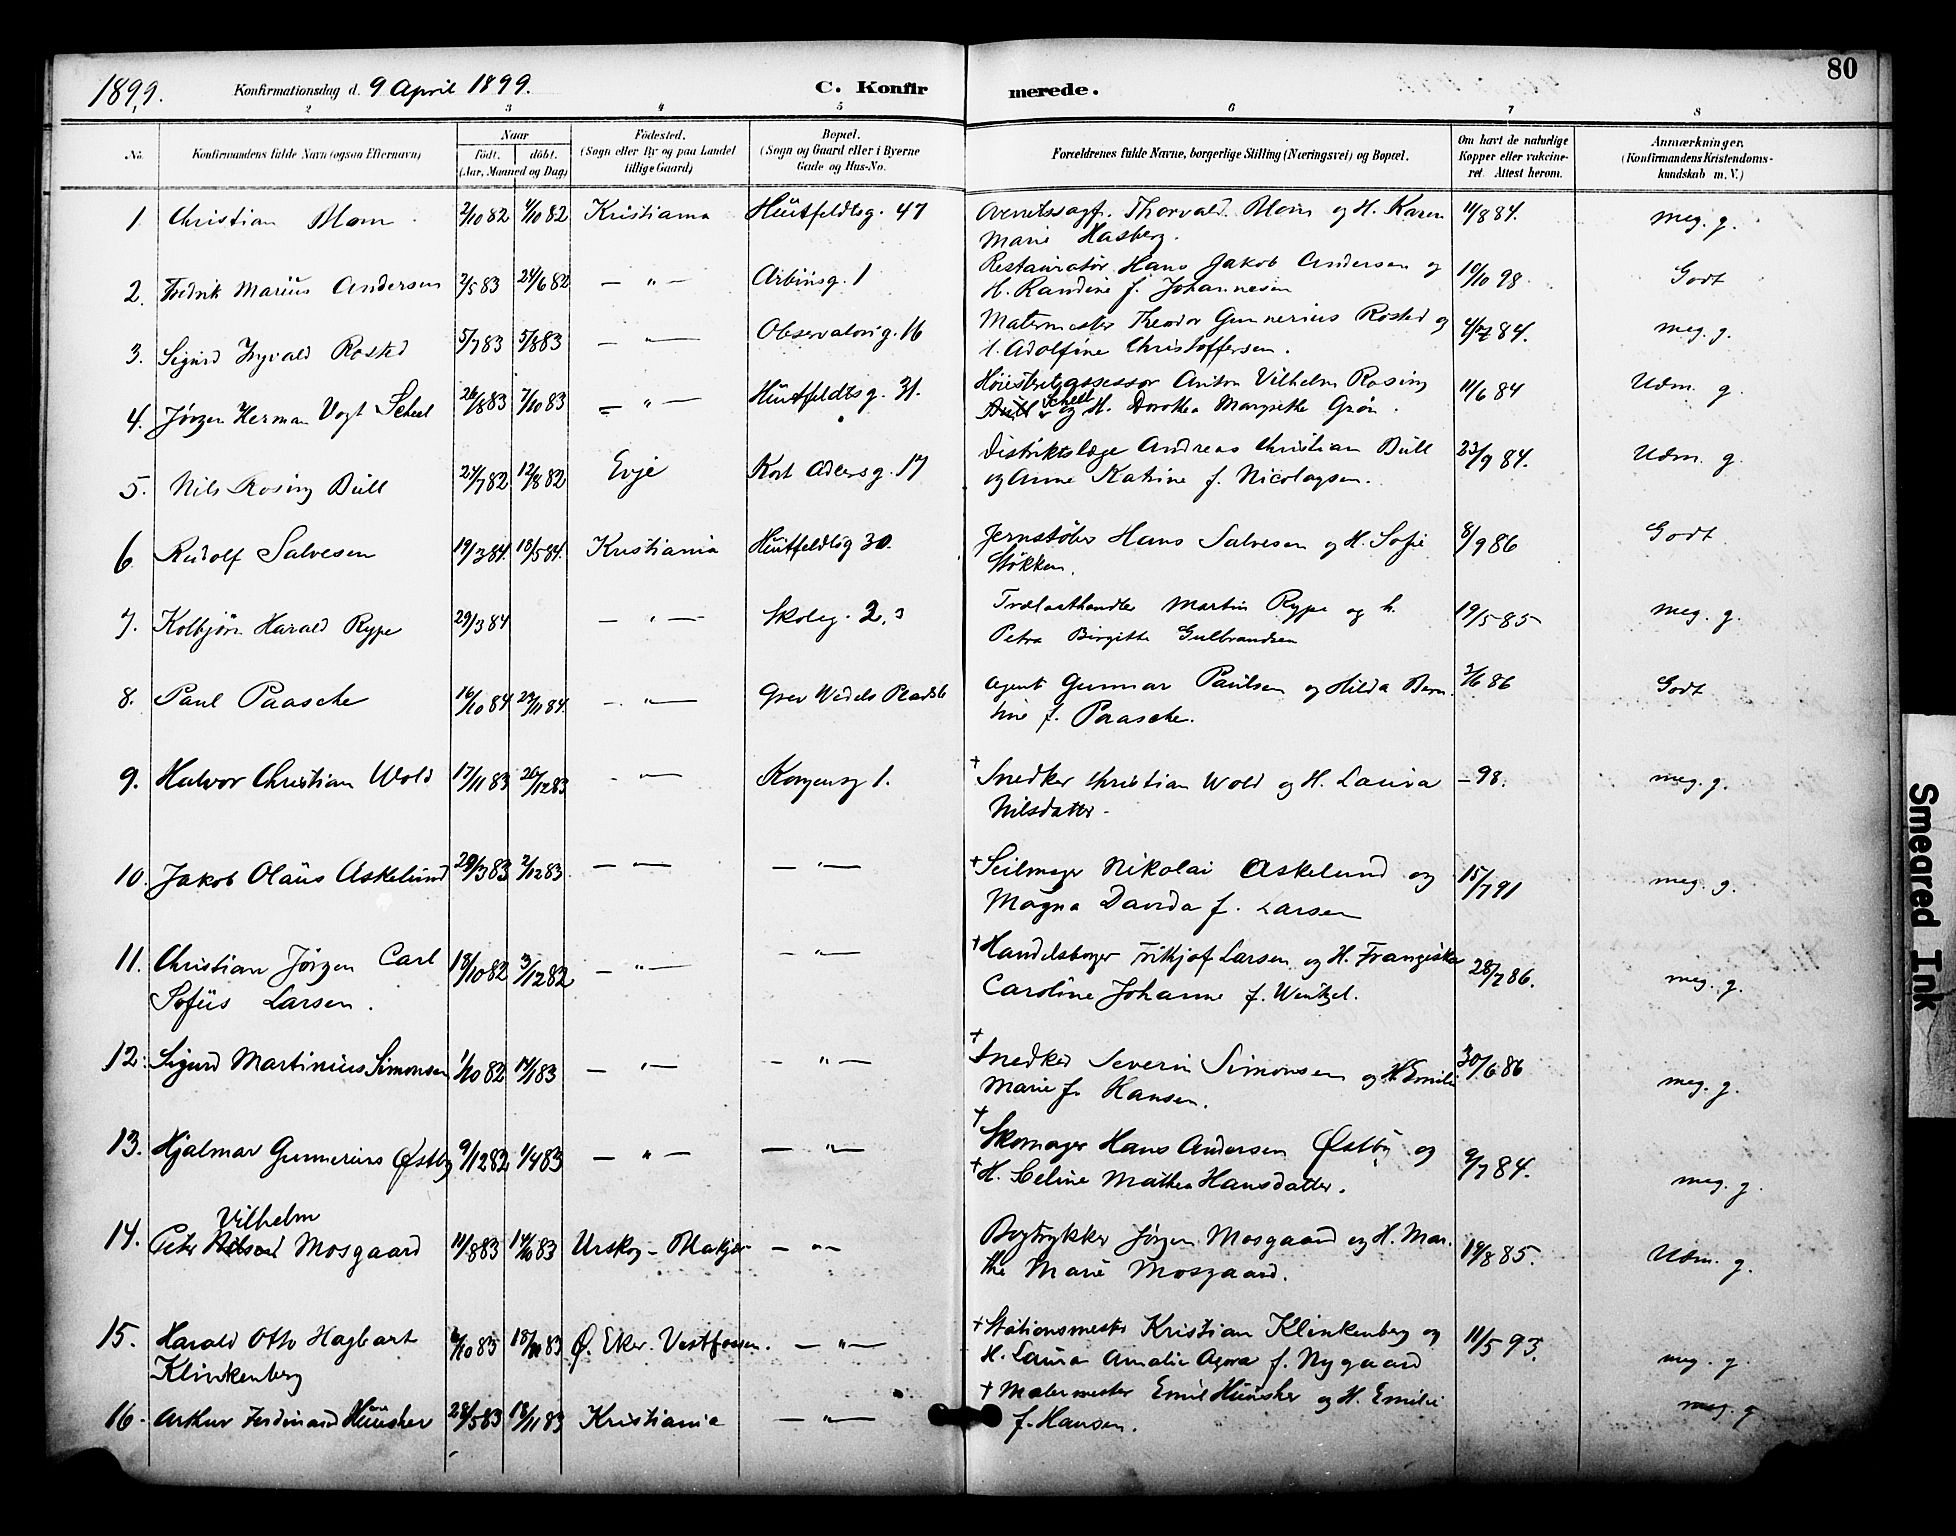 1899. Konfirmationsdag d. 9 April 1899. C. Konfirmerede. 80
2 3 4 5 6 7 8
No. Konfirmandens fulde Navn (ogsaa Efternavn) Naar født. døbt. (Aar, Maaned og Dag) Fødested. (Sogn eller By og paa Landet tillige Gaard) Bopæl. (Sogn og Gaard eller i Byerne Gade og Hus-No. Forældrenes fulde Navne, borgerlige Stilling (Næringsvei) og Bopæl. Om havt de naturlige Kopper eller vakcineret. Attest herom. Anmærkninger. (Konfirmandens Kristendomskundskab m. V.)
1 Christian 2/10 82 4/10 82 Kristiania Huitfeldtsg. 47 Thorvald og H. Karen 11/8 84. meg. g.
Marie Hasberg.
2. Fredrik Marius Andersen 2/5 83 24/6 82 — " — Arbinsg. 1 Restauratør Hans Jakob Andersen og 10/10 98 Godt
H. Randine f. Johannesen
3. Sigurd Trygvald Rosted 5/7 83 5/8 83 — " — Observatorig. 16 Malermester Theodor Gunnerius Rosted og 4/7 84. meg. g.
Adolfine Christoffersen.
4. Jörgen Herman Vogt Scheel 26/8 83 7/10 83 — " — Huitfeldtsg. 31. Høiestretsassessor Anton Vilhelm Rosing 11/6 84 Udm. g.
Scheel og H. Dorothea Margrethe Grøn.
5. Nils Rosing Bull 24/7 82 12/8 82 Evje Kort Adelersg. 17 Distriktslæge Andreas Christian Bull 23/9 84. Udm. g.
og Anne Katrine f. Nicolaysen.
6 Rudolf Salvesen 19/3 84. 18/5 84. Kristiania Huitfeldtsg 30. Jernstøber Hans Salvesen og H. Sofie 8/9 86 Godt
Støkken.
7. Kolbjörn Harald Rype 29/3 84 — " — Skoleg. 2, Trælasthandler Martin Rype og h. 19/5 85 meg. g.
Petra Birgitte Gulbrandsen
8. Paul Paasche 16/10 84 23/11 84. — " — Grev Wedels Plads 6 Agent Gunnar Paulsen og Hilda Bern 3/6 86 Godt
tine f. Paasche.
9. Halvor Christian Wold 17/11 83 26/12 83 — " — Kongensg 1. + Snedker Christian Wold og H. Laura — 98. meg. g.
Nilsdatter.
10. Jakob Olaus Askelund 29/3 83 2/12 83. — " — — " — + Seilmager Nikolai Askelund og 15/7 91 meg. g.
Magna Davida f. Larsen
11. Christian Jörgen Carl 18/10 82 3/12 82 — " — — " — + Handelsborger Frithjof Larsen og H. Franziska 28/7 86. meg. g.
Sofus Larsen. Caroline Johanne f. Wentzel.
12. Sigurd Martinius Simonsen 1/10 82 14/1 83 — " — — " — + Snedker Severin Simonsen og H. Emilie 30/6 86 meg. g.
Marie f. Hansen.
13. Hjalmar Gunnerius Østby 9/12 82 1/4 83 — " — — " — + Skomager Hans Andersen Østby og 9/7 84. meg. g.
+ H. Seline Mathea Hansdatter.
14. Peter Vilhelm Mosgaard 11/8 83 14/10 83 Urskog — " — Bogtrykker Jørgen Mosgaard og H. Mar- 19/8 85. Udm. g.
the Marie Mosgaard.
15. Harald Otto Hagbart 6/10 83 18/11 83 Ø. Eker. Vestfossen. — " — + Stationsmester Kristian Klinkenberg og 11/5 93. meg. g.
Klinkenberg H. Laura Amalie Agora f. Nygaard
16. Arthur Ferdinand Huusher 28/5 83 18/11 83 Kristiania — " — + Malermester Emil Huusher og H. Emilie meg. g
f. Hansen.
Smeared Ink